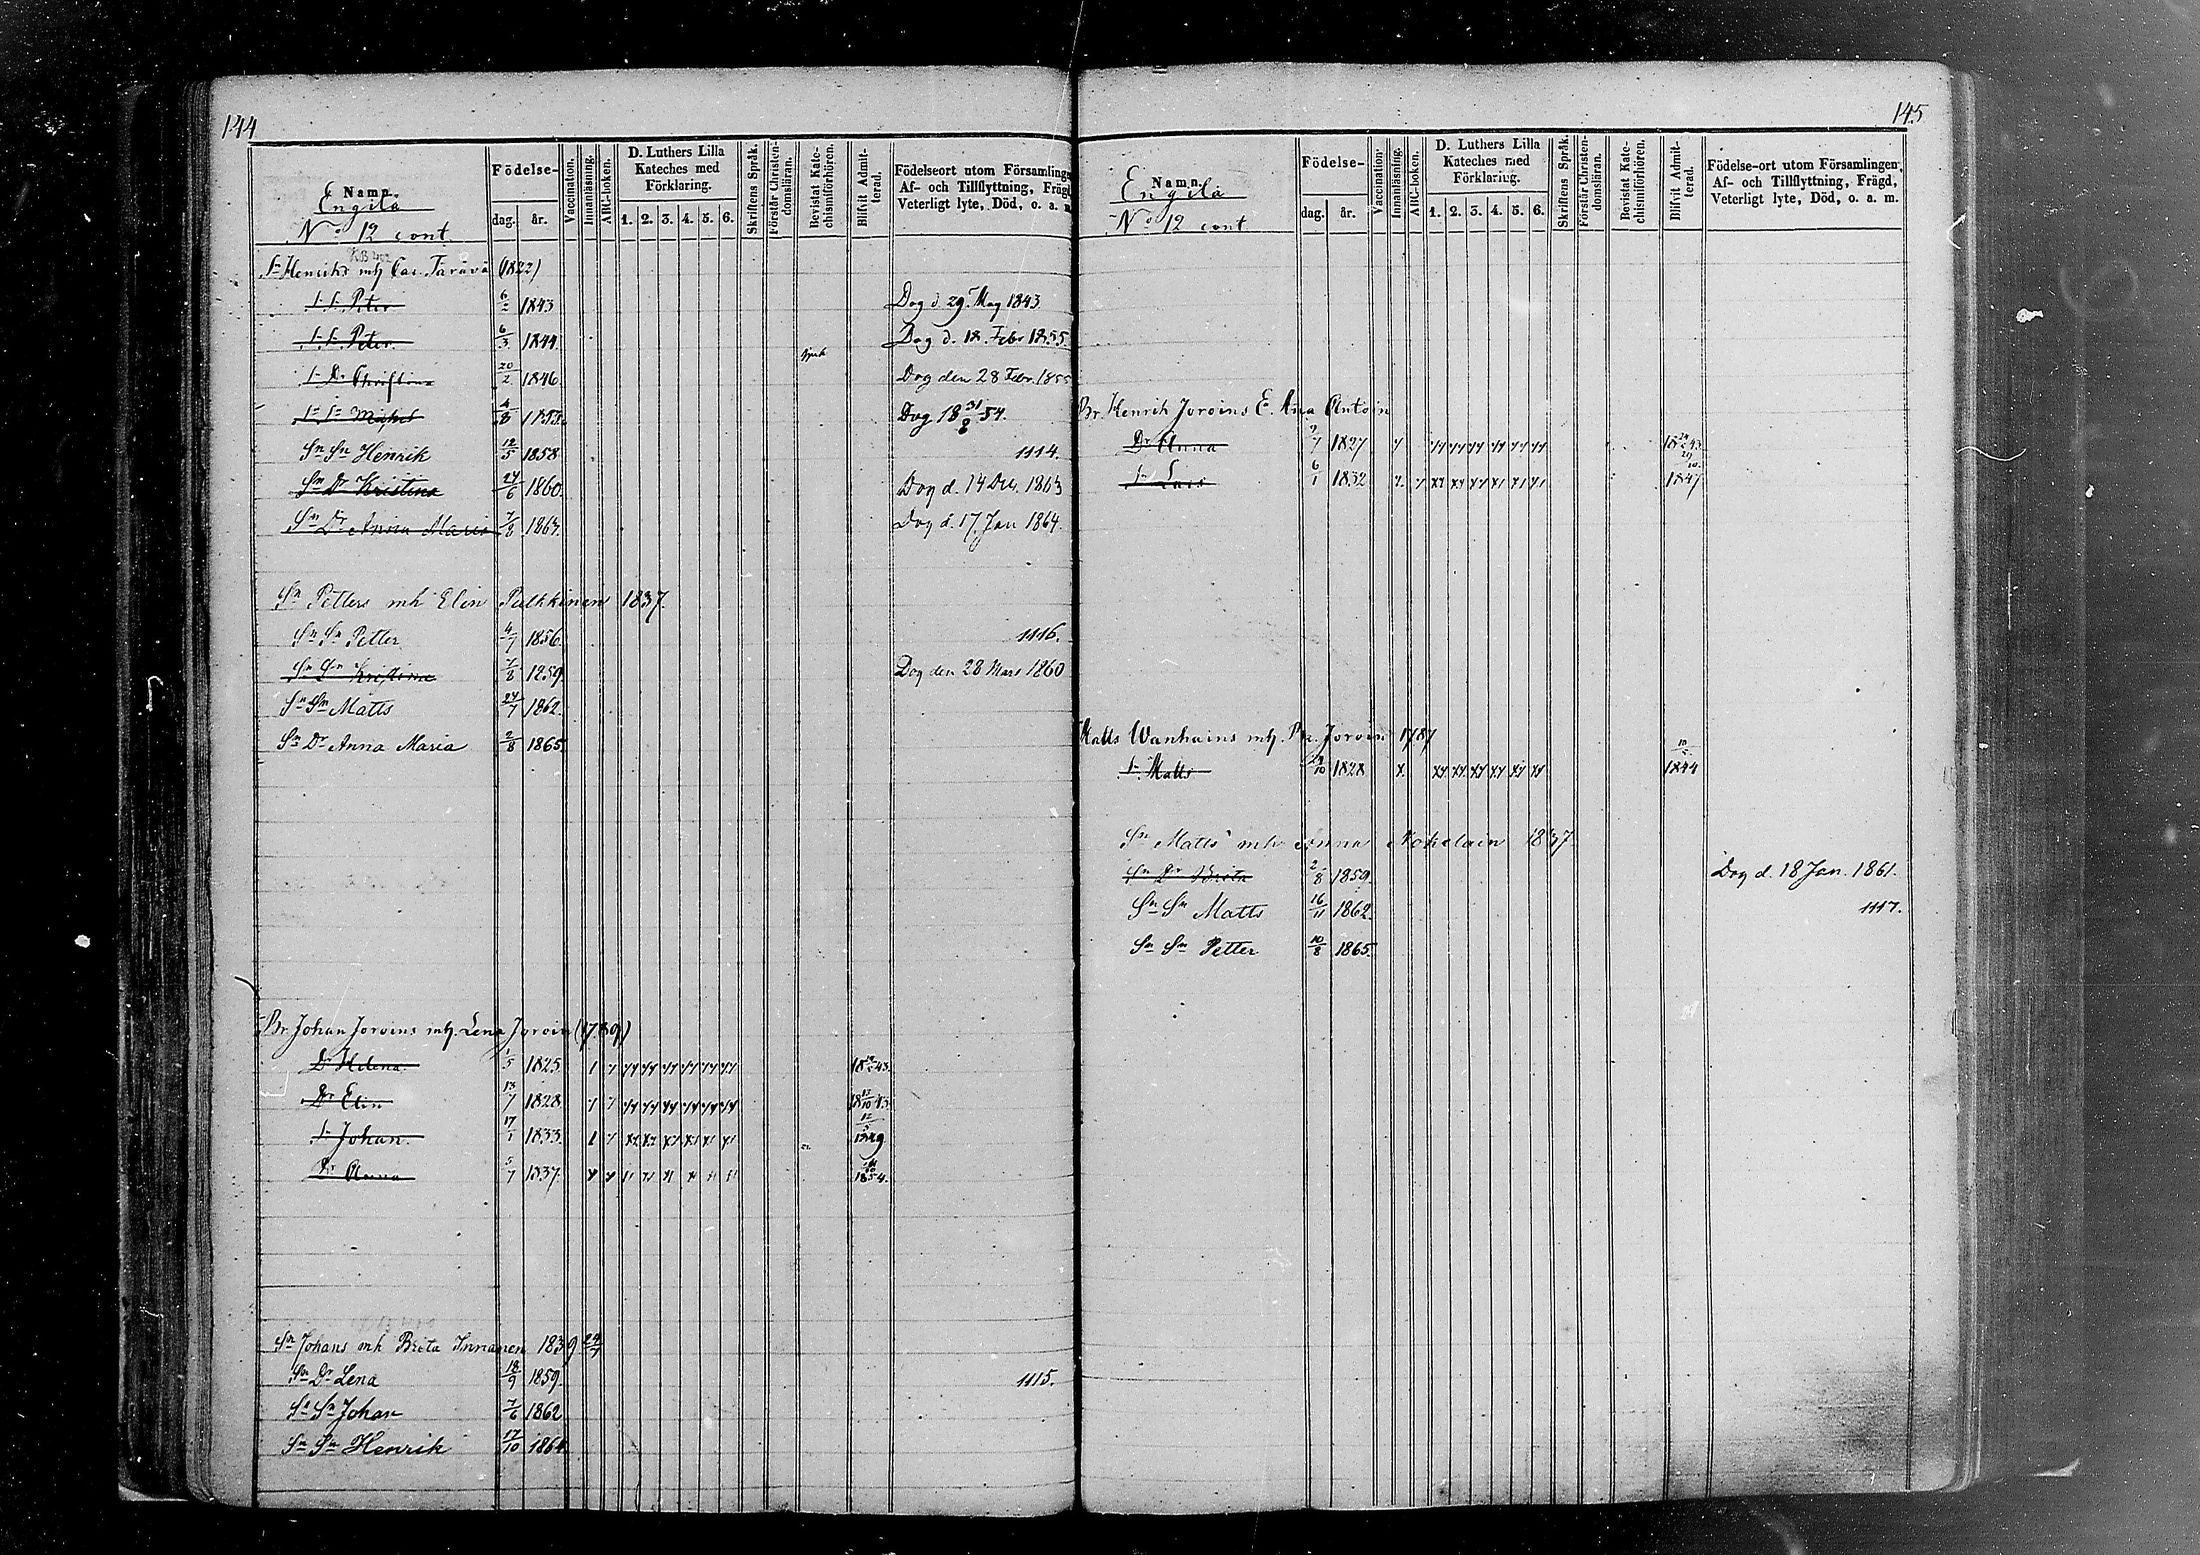 144
Namn.
Engilä
No 12 cont
Födelse-
dag. år.
Vaccination.
Innanläsning.
ABC-boken.
D. Luthers Lilla
Kateches med
Förklaring.
1. 2. 3. 4. 5. 6.
Skriftens Språk.
Förstår Christen-
domsläran.
Bevistat Kate-
chismiförhören.
Blifvit Admit-
terad.
Födelseort utom Församlingen
Af- och Tillflyttning, Frägd,
Veterligt lyte, Död, o. a. m.
Sn Henriks mh Car. Tarävä (1822)
S. S. Peter 6/2 1843 Dog d. 29 May 1843
S. S. Peter 6/3 1844 Dog d. 18. Febr 1855.
S. Dr Christina 20/2 1846 Dog den 28 Febr. 1855
Sn Sn Michel 4/8 1853. Dog 18 31/8 54.
Sn Sn Henrik 12/5 1858 1114.
Sn Dr Kristina 24/6 1860. Dog d. 14 Dec. 1863
Sn Dr Anna Maria 7/8 1863. Dog d. 17. Jan 1864.
Sn Petters mh Elin Pulkkinen 1837.
Sn Sn Petter 4/7 1856. 1116.
Kristina 7/8 1859. Dog den 28 Mars 1860
Sn Sn Matts 24/7 1862.
Sn Dr Anna Maria 2/8 1865.
Br Johan Joroins mh. Lena Joroin (1789)
Dr Helena. 1/5 1825
Dr Elin 13/7 1828
S. Johan. 17/1 1833. 1849
Dr Anna 5/7 1837. 1854.
Sn Johans mh Brita Innanen 1839 24/7
Sn Dr Lena 18/9 1859. 1115.
Sn Sn Johan 7/6 1862
Sn Sn Henrik 17/10 1864.
145
Namn.
Engilä
No 12 cont
Födelse-
dag. år.
Vaccination.
Innanläsning.
ABC-boken.
D. Luthers Lilla
Kateches med
Förklaring.
1. 2. 3. 4. 5. 6.
Skriftens Språk.
Förstår Christen-
domsläran.
Bevistat Kate-
chismiförhören.
Blifvit Admit-
terad.
Födelse-ort utom Församlingen,
Af- och Tillflyttning, Frägd,
Veterligt lyte, Död, o. a. m.
Br. Henrik Joroins E. Anna Antoin
Dr Anna 1827
S. Lars 6/1 1832 1847
Matts Wanhains mh. Joroin 1787
S. Matts 1828 1844
Sn Matts' mh Anna Nokelain 1837
Sn Dr Brita 2/8 1859. Dog d. 18 Jan. 1861.
Sn Sn Matts 16/11 1862. 1117.
Sn Sn Petter 10/8 1865.